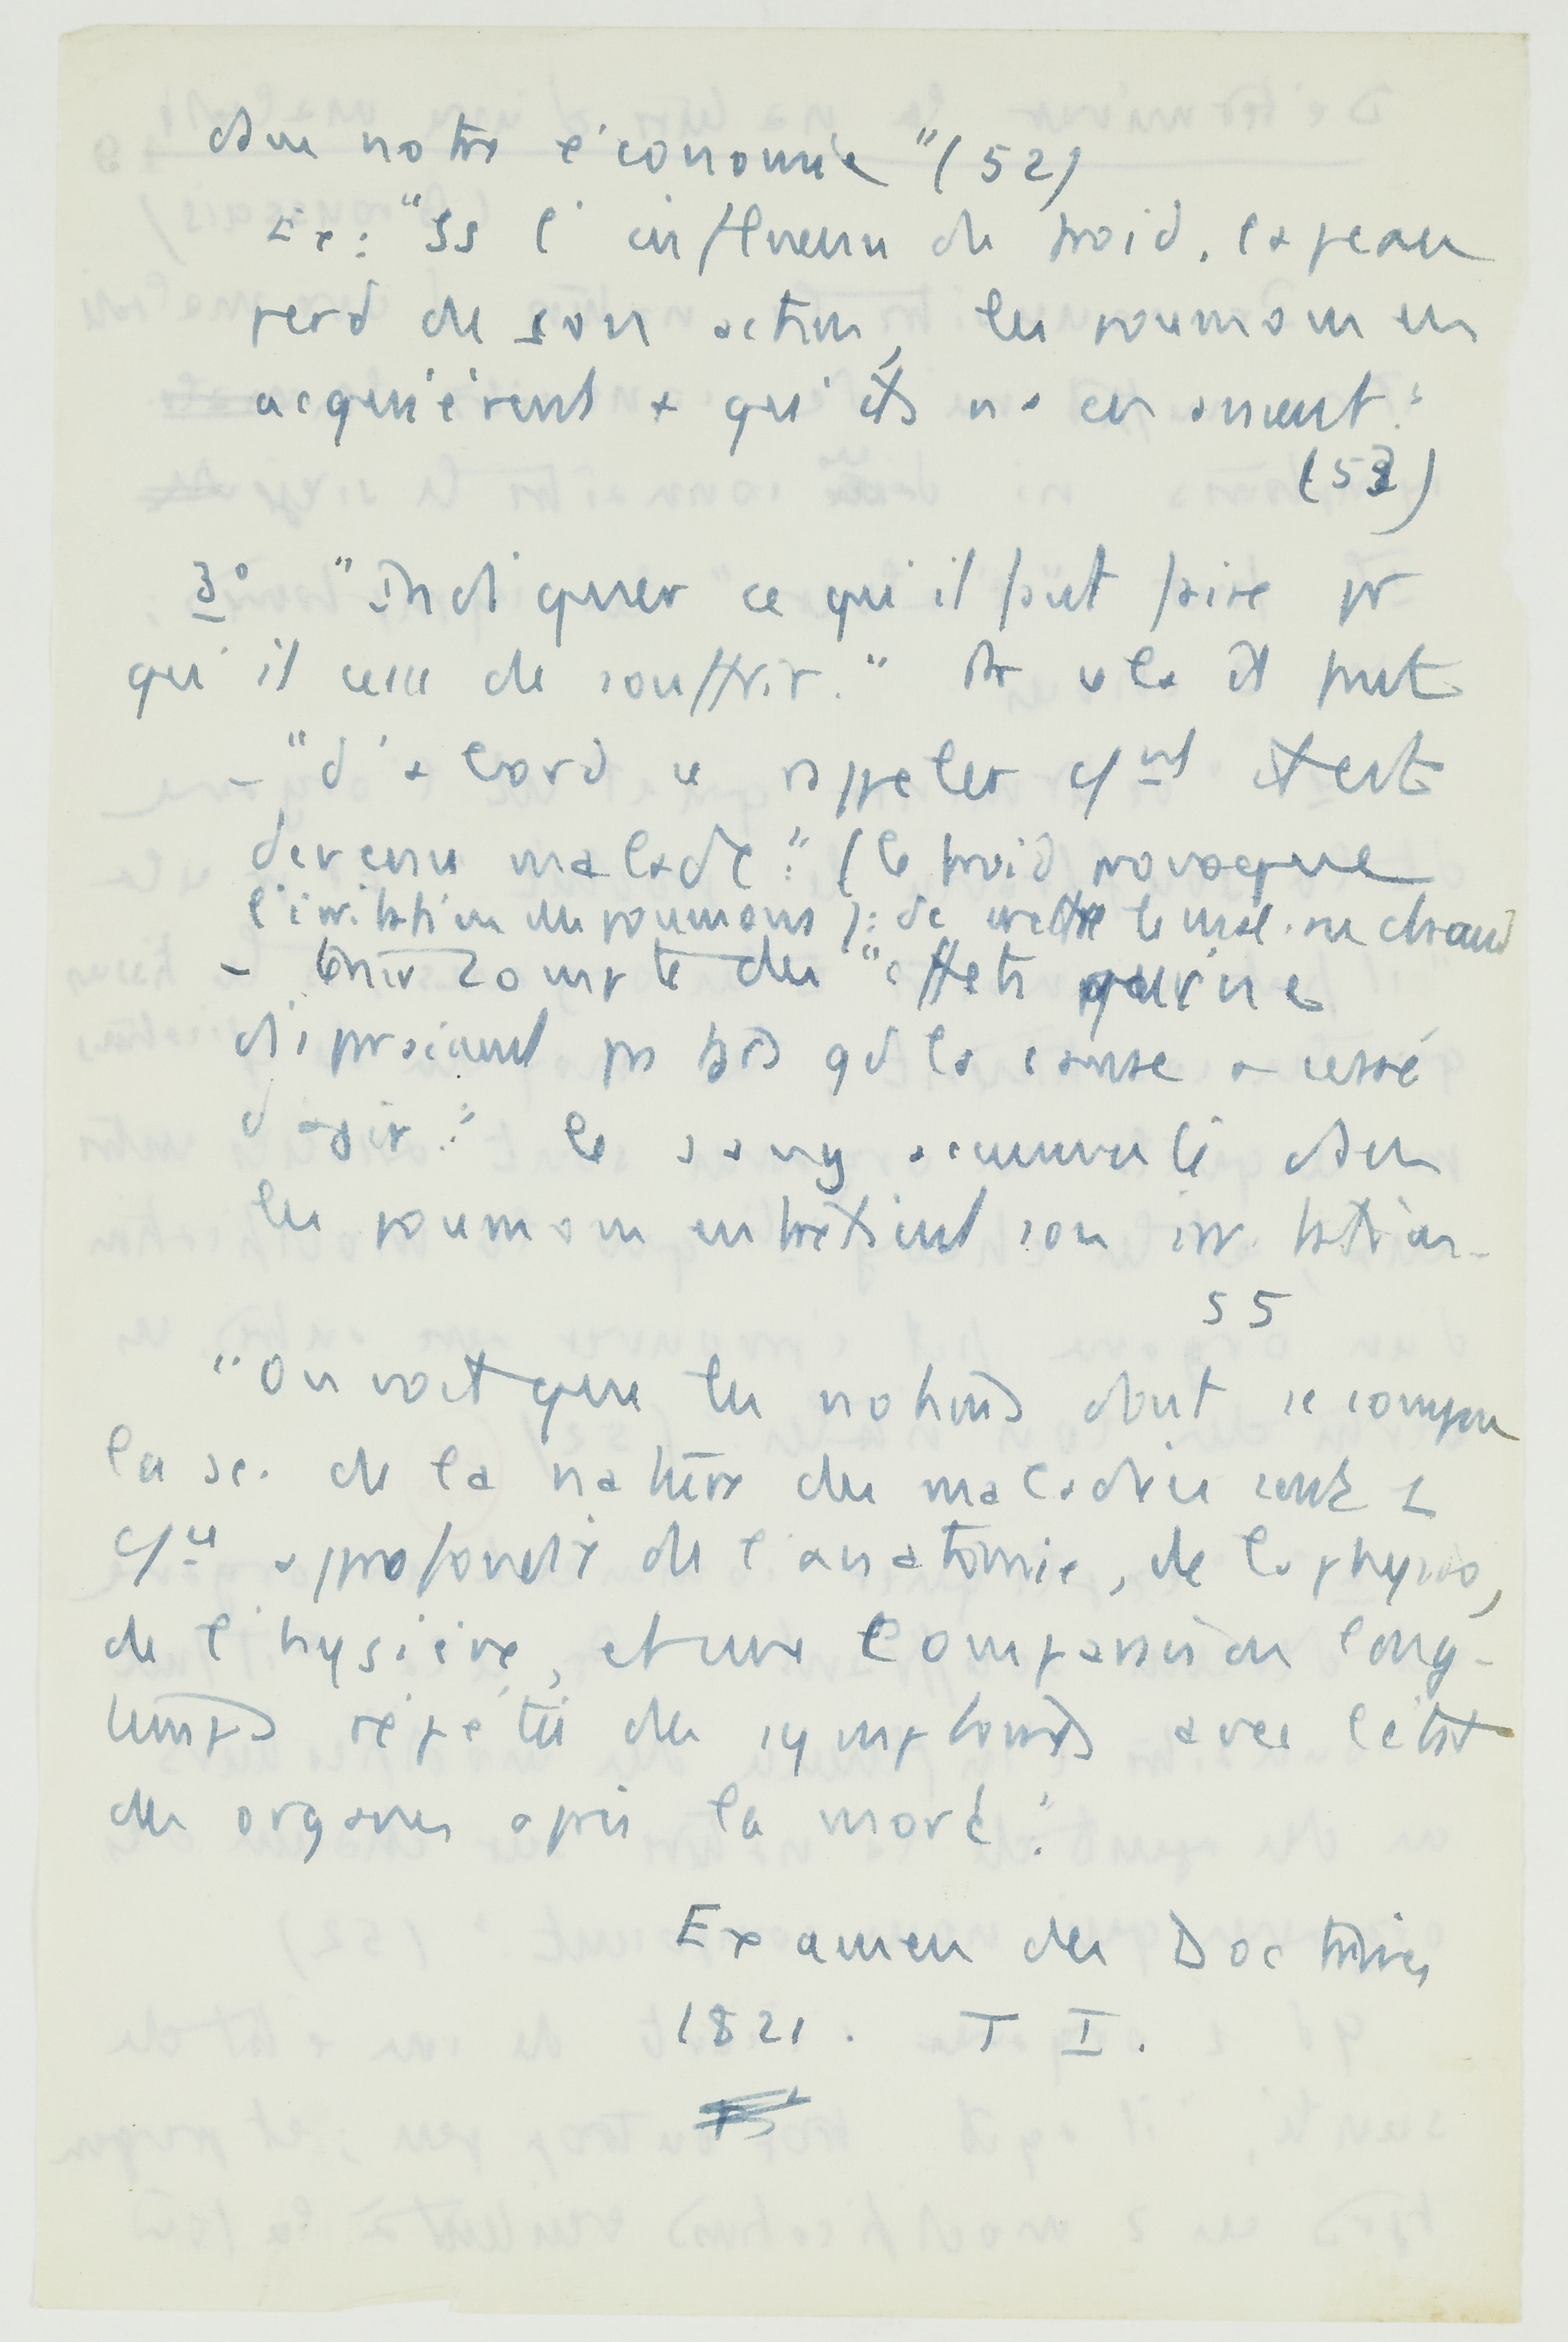 dans notre économie" (52)
Ex : "ss l'influence du froid, la peau
perd de son action, les poumons en
acquièrent + qu'ils n'en avaient."
(53)
3° "Indiquer ce qu'il faut faire pr
qu'il cesse de souffrir." Pr cela il faut
- "d'abord se rappeler cmt il est
devenu malade". (le froid provoque
l'irritation des poumons) : de mettre le mal. au chaud
- tenir compte des "effets qui ne
disparaissent pas tjs qd la cause a cessé
d'agir." le sang accumulé dans
les poumons entretient son irritation.
55
"On voit que les notions dont se compose
la sc. de la nature des maladies sont 1
cce approfondie de l'anatomie, de la physio,
de l'hygiène, et une comparaison long-
temps répétée des symptômes avec l'état
des organes après la mort."
Examen des Doctrines
1821. T I.